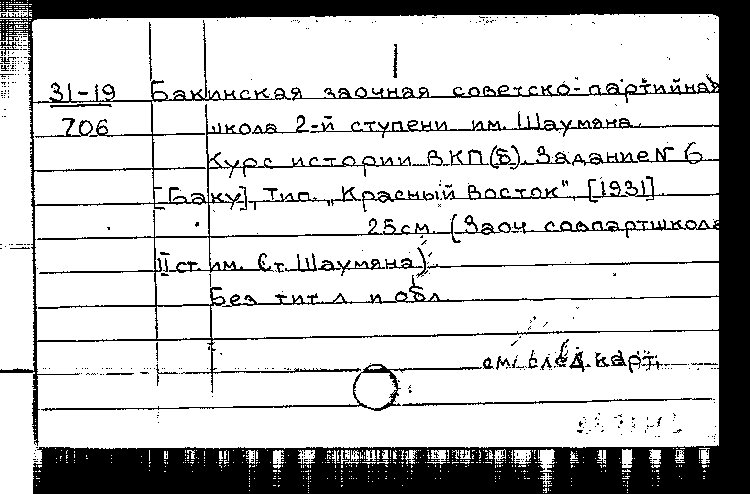 31-19 Бакинская заочная советско-партийная
706 школа 2-й ступени им. Шаумяна.
Курс истории ВКП(б). Задание № 6
[Баку], Тип. „Красный Восток", [1931].
25см. (Заоч. совпартшкола
II ст. им. Ст. Шаумяна).
Без тит. л. и обл.
см. след. карт.